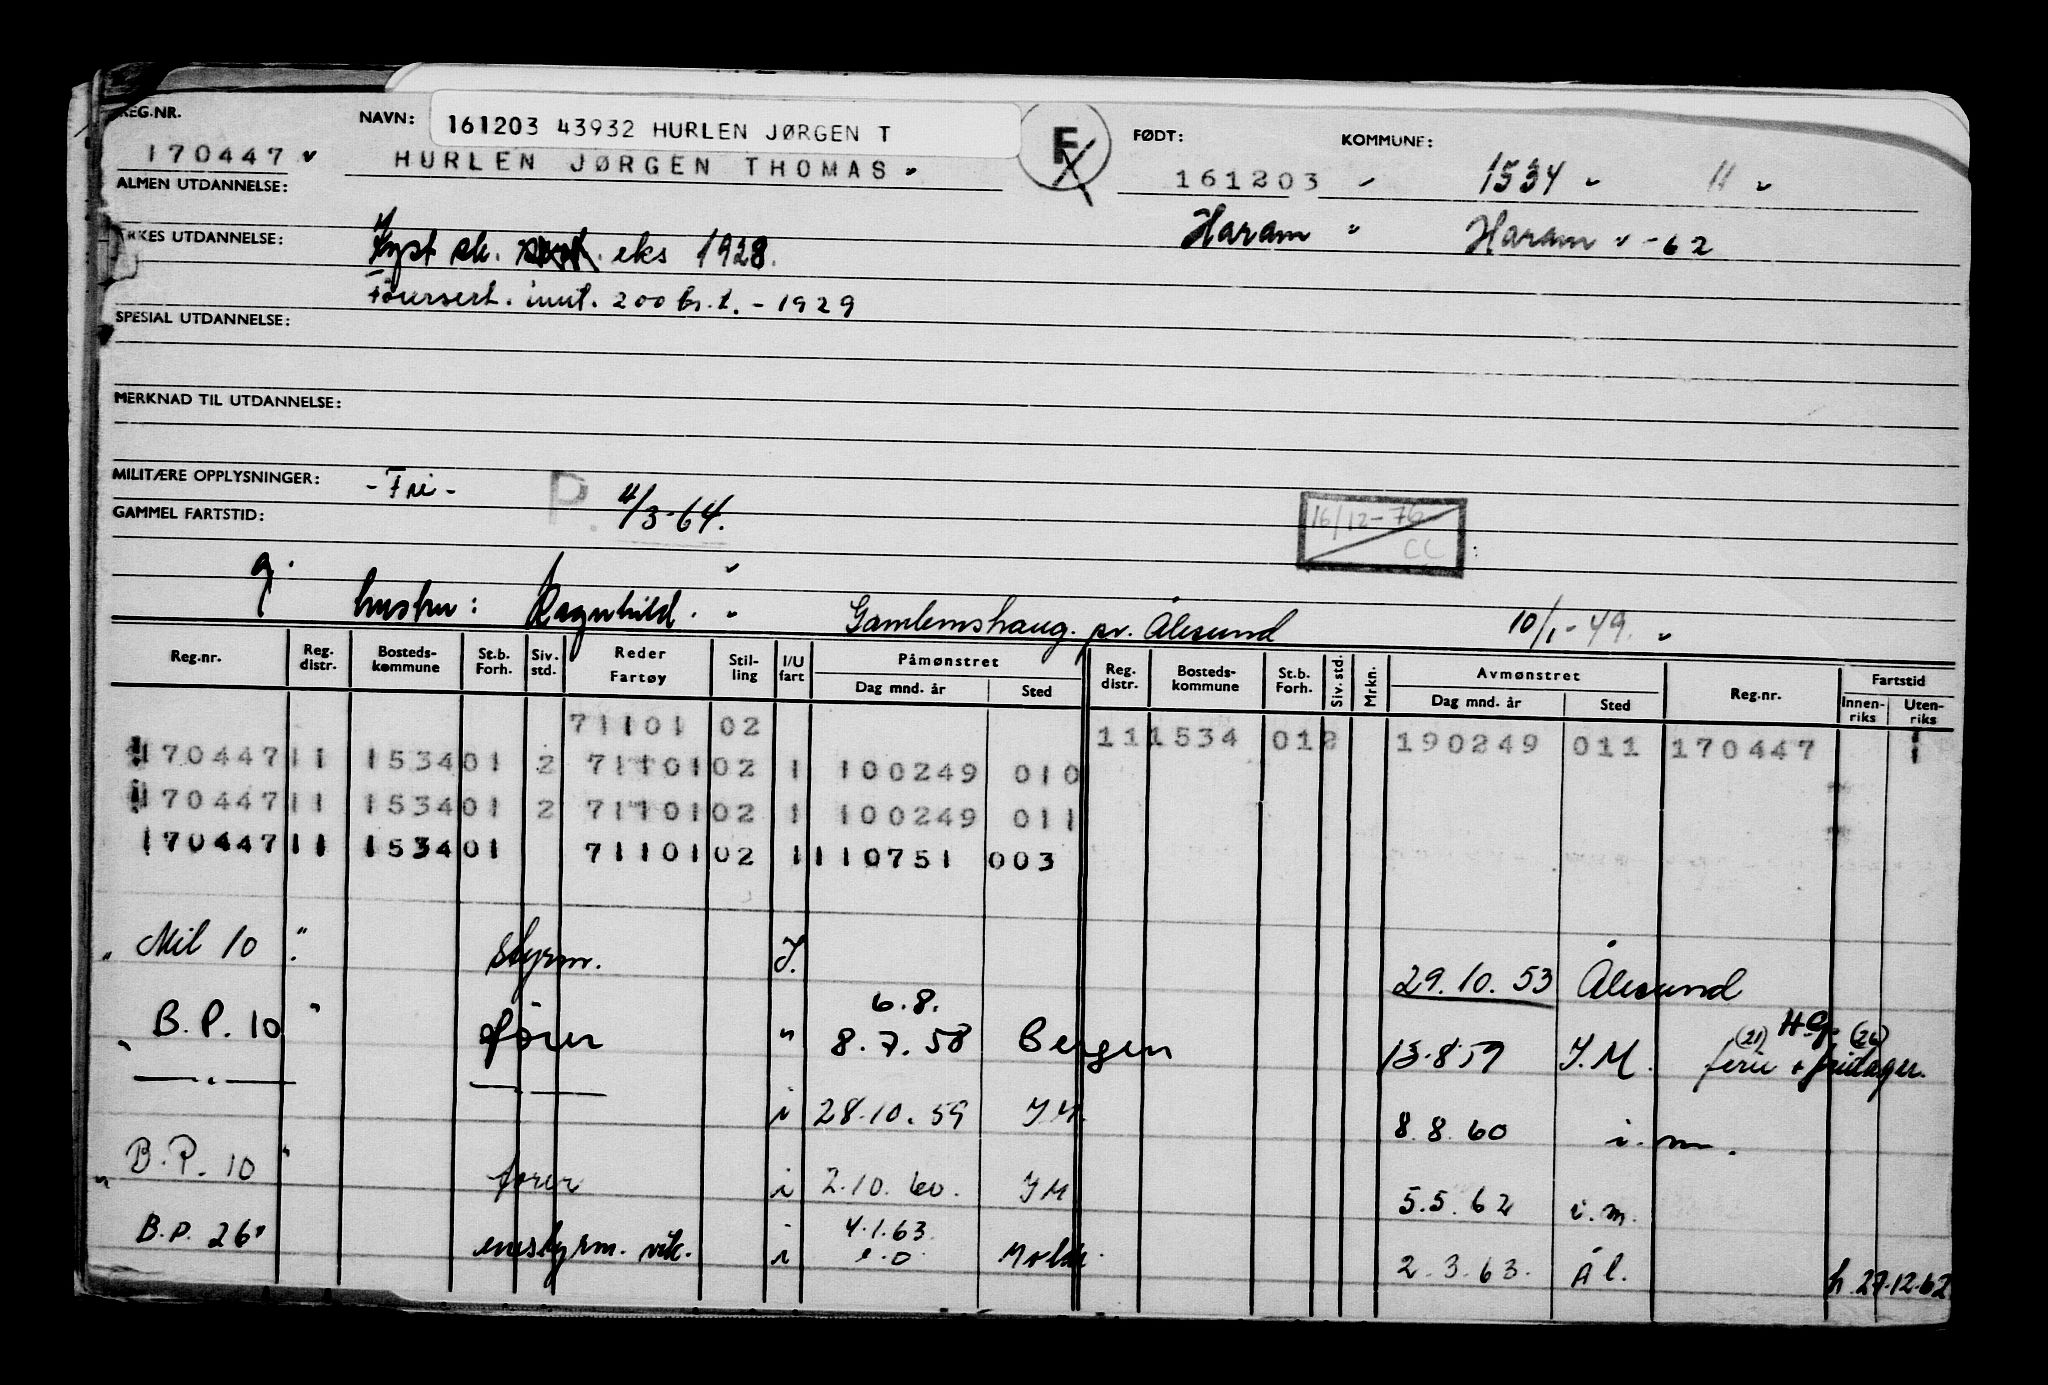 REG.NR. NAVN: 161203 43932 HURLEN JØRGEN T F FØDT: KOMMUNE:
170447 HURLEN JØRGEN THOMAS 161203 1534 11
ALMEN UTDANNELSE: Haram Haram -62
RKES UTDANNELSE: Kyst sk. eks 1928.
Førersert. innt. 200 br.t. - 1929
SPESIAL UTDANNELSE:
MERKNAD TIL UTDANNELSE:
MILITÆRE OPPLYSNINGER: -Fri- P. 4/3-64. 16/12-76 CC
GAMMEL FARTSTID:
g. hustru: Ragnhild. Gamlemshaug. pr. Ålesund 10/1-49.
Reg.nr. Reg. distr. Bosteds-kommune St.b. Forh. Siv. std. Reder Fartøy Stil-ling I/U fart Påmønstret Dag mnd. år Sted Reg. distr. Bosteds-kommune St.b. Forh. Siv. std. Mrkn. Avmønstret Dag mnd. år Sted Reg.nr. Fartstid Innen-riks Uten-riks
71101 02 11 1534 01 2 190249 011 170447 1
170447 11 1534 01 2 71101 02 1 100249 010
170447 11 1534 01 2 71101 02 1 100249 011
170447 11 1534 01 71101 02 1 110751 003
" Mil 10 " styrm. I. 29.10.53 Ålesund
6.8. H.G.
" B.P. 10 " fører " 8.7.58 Bergen 13.8.59 I.M. (21) ferie + fridager. (26)
— " — — " — i 28.10.59 IM. 8.8.60 i.m.
" B.P. 10 " fører i 2.10.60. IM 5.5.62 i.m.
4.1.63.
B.P. 26 " enestyrm. vik. i e.o Molde. 2.3.63. Ål. h. 27.12.62